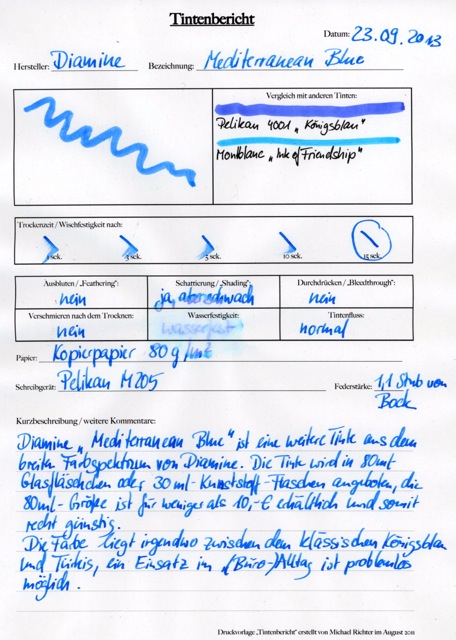 Tintenbericht
Datum: 23.09.2013
Hersteller: Diamine Bezeichnung: Mediterranean Blue
Vergleich mit anderen Tinten:
Pelikan 4001 „Königsblau"
Montblanc „Ink of Friendship"
Trockenzeit / Wischfestigkeit nach:
1 sek. 3 sek. 5 sek. 10 sek. 15 sek.
Ausbluten / „Feathering": Schattierung / „Shading": Durchdrücken / „Bleedthrough":
nein ja, aber schwach nein
Verschmieren nach dem Trocknen: Wasserfestigkeit: Tintenfluss:
nein wasserfest normal
Papier: Kopierpapier 80 g/m²
Schreibgerät: Pelikan M205 Federstärke: 1,1 Stub von
Bock
Kurzbeschreibung / weitere Kommentare:
Diamine „Mediterranean Blue" ist eine weitere Tinte aus dem
breiten Farbspektrum von Diamine. Die Tinte wird in 80ml-
Glasfläschchen oder 30 ml-Kunststoff-Flaschen angeboten, die
80ml-Größe ist für weniger als 10,-€ erhältlich und somit
recht günstig.
Die Farbe liegt irgendwo zwischen dem klassischen Königsblau
und Türkis, ein Einsatz im (Büro-)Alltag ist problemlos
möglich.
Druckvorlage „Tintenbericht" erstellt von Michael Richter im August 2011